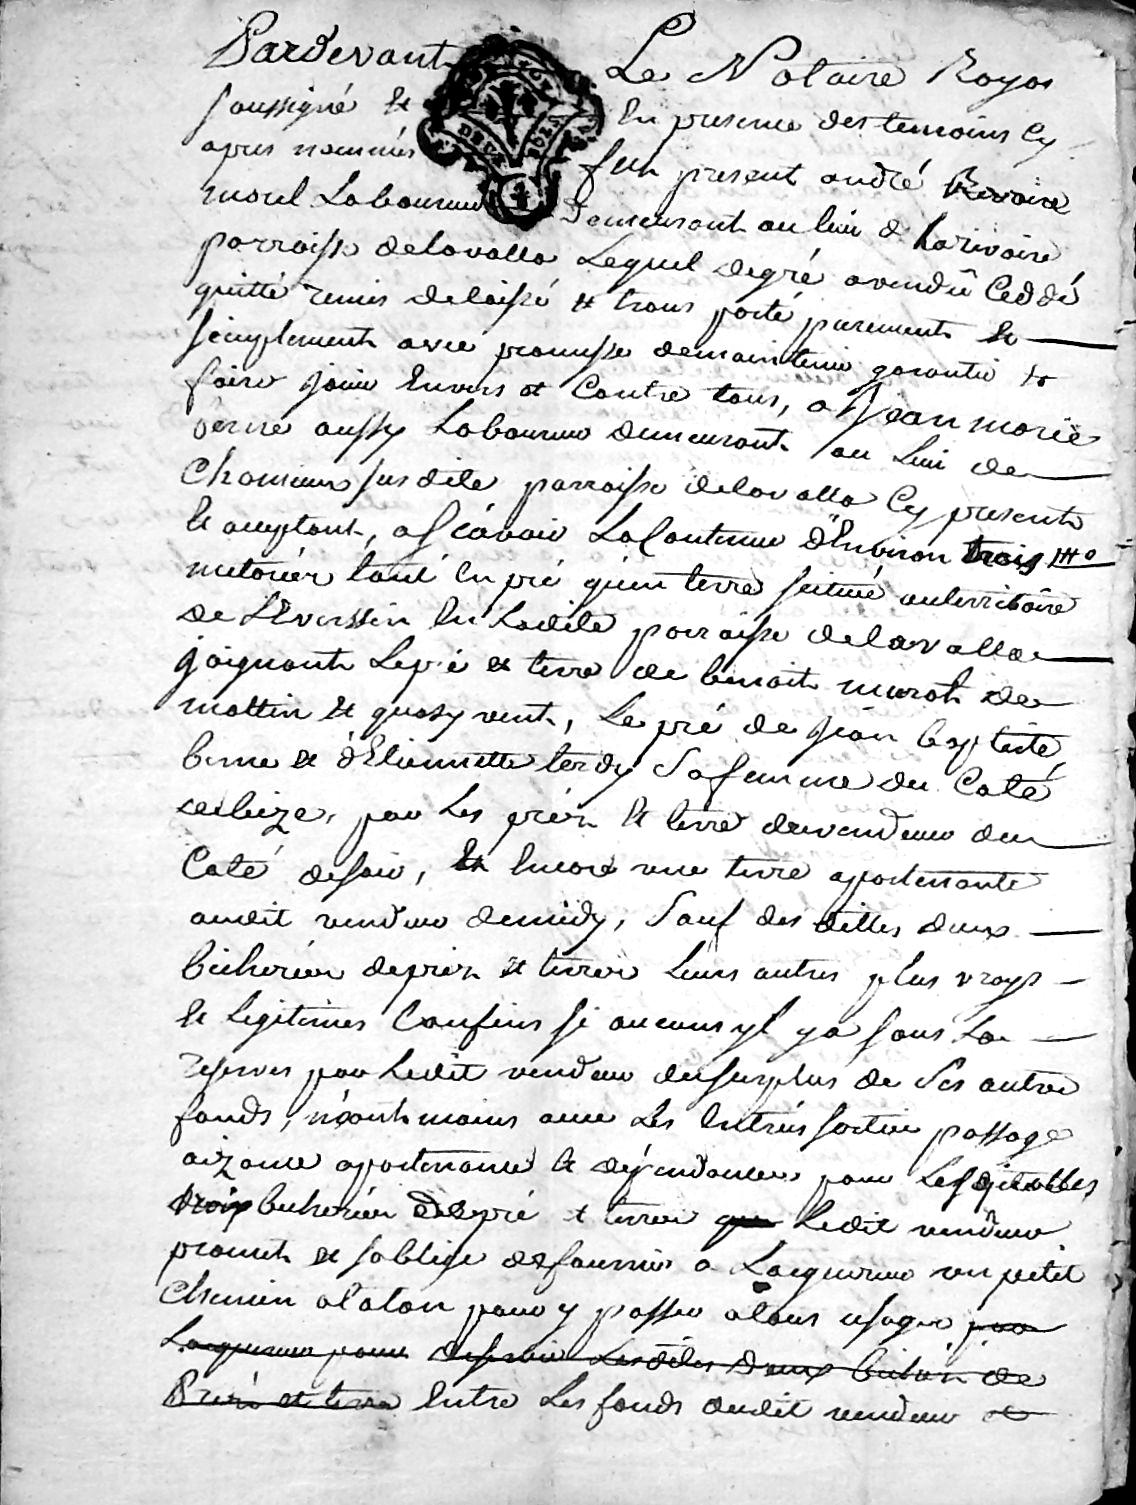 Pardevant Le Notaire Royal
soussigné et En presence des temoins Cy
apres nommés fut present andré Rivoire
morel Laboureur Demeurant au lieu de Larivoire
parroisse delavalla Lequel degré a vendû Ceddé
quitté remis delaissé et trans porté purement et
simplement avec promesse demaintenir garantir et
faire jouir Envers et Contre tous, a Jean marie
aussy Laboureur demeurant au Lieu de
susdite parroisse delavalla Cy present
et acceptant, asscavoir La Contenue d'Environ trois
meterées tant En pré qu'en terre scitué au territoire
de En Ladite parroisse delavalla
joignant Le pré et terre de benoit de
mattin et quasy vent, Le pré de jean baptiste
et d'Etiennette Sa femme du Coté
debize, par Les préz et terre duvendeur du
Coté desoir, Et Encore une terre apartenante
audit vendeur demidy, Sauf des dittes deux
bicherées depréz et terres Leurs autres plus vrays
et Legitimes Confins si aucuns yl y a sous La
reserve par Ledit vendeur dusurplus de Ses autres
fonds, néantmoins avec Les Entrées sorties passage
aizance apartenance et dépendances pour Lesquelles
trois bicherées de pré et terres que Ledit vendeur
promet et soblige defournir a Lacquereur un petit
Chemin a talon pour y passer a tous usages par
Lacquereur pour desservir Lesdites deux bicherées de
Préz et terre Entre Les fonds dudit vendeur et